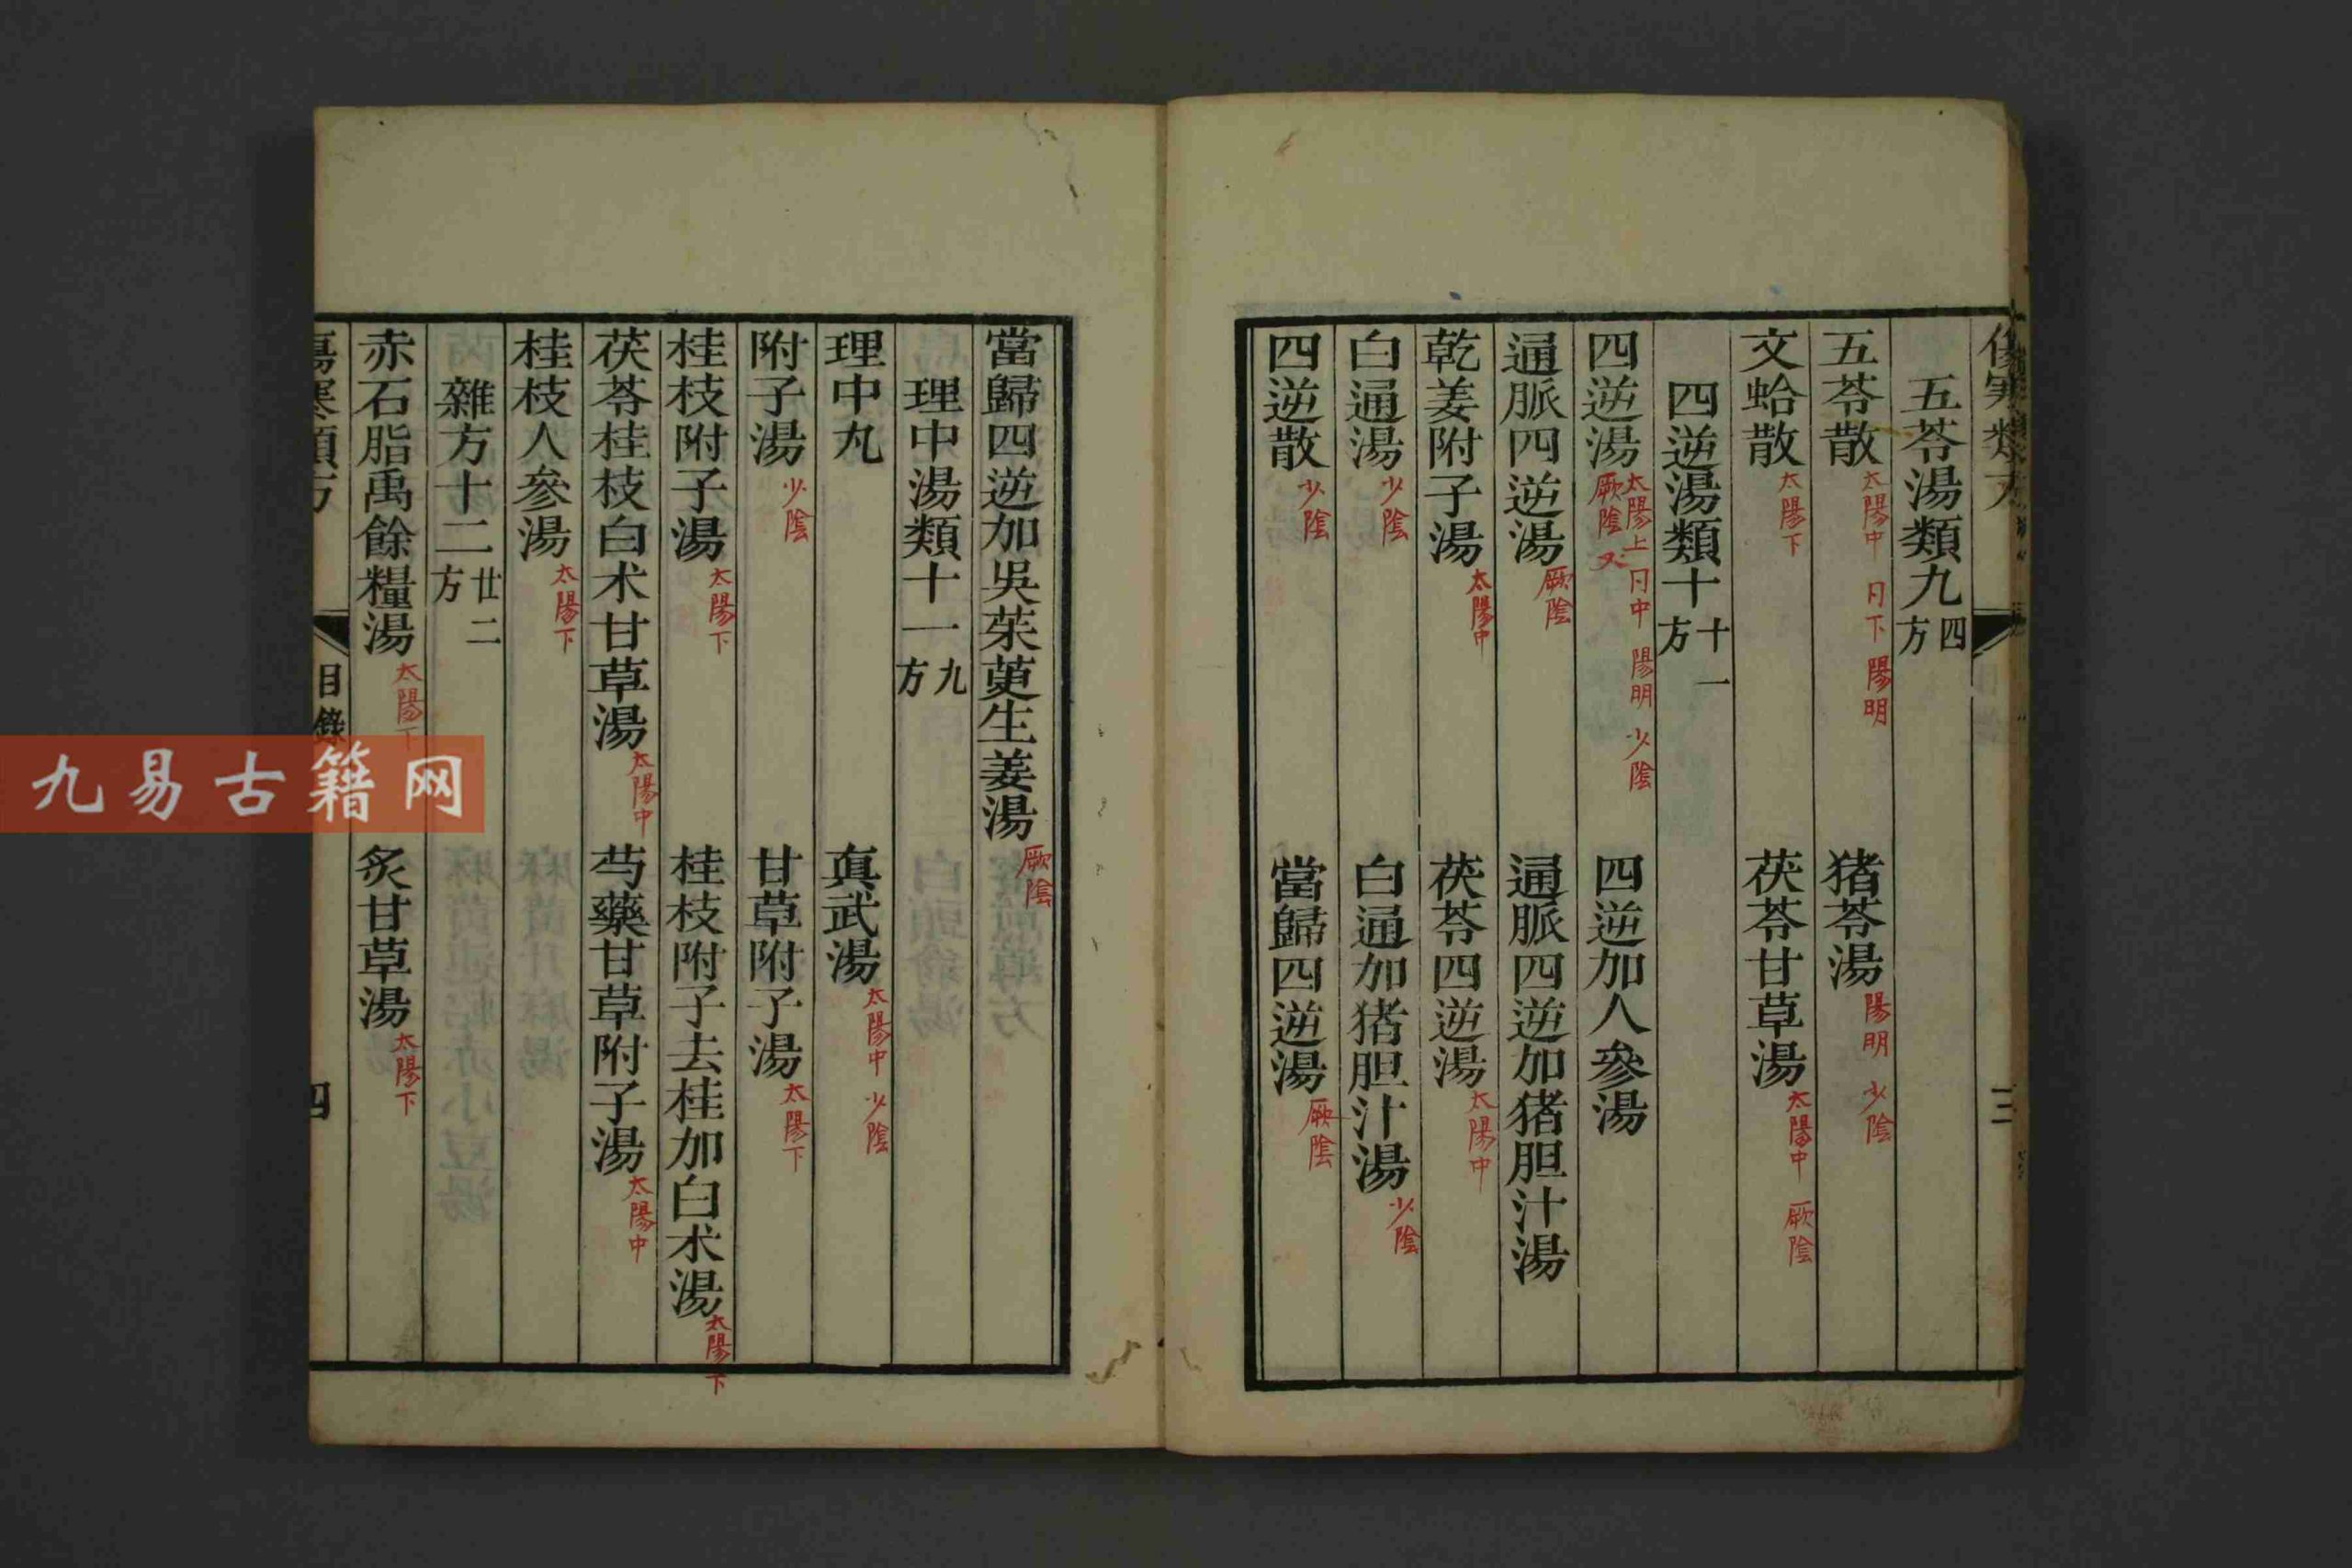 傷寒類方
三
五苓湯類九 四方
五苓散 太陽中 又下 陽明 猪苓湯 陽明 少陰
文蛤散 太陽下 茯苓甘草湯 太陽中 厥陰
四逆湯類十 十一方
四逆湯 太陽上 又中 陽明 少陰 厥陰 四逆加人參湯
通脈四逆湯 厥陰 通脈四逆加猪胆汁湯
乾姜附子湯 太陽中 茯苓四逆湯 太陽中
白通湯 少陰 白通加猪胆汁湯 少陰
四逆散 少陰 當歸四逆湯 厥陰
當歸四逆加吳茱萸生姜湯 厥陰
理中湯類十一 九方
理中丸 真武湯 太陽中 少陰
附子湯 少陰 甘草附子湯 太陽下
桂枝附子湯 太陽下 桂枝附子去桂加白术湯 太陽下
茯苓桂枝白术甘草湯 太陽中 芍藥甘草附子湯 太陽中
桂枝人參湯 太陽下
雜方十二 廿二方
赤石脂禹餘糧湯 太陽下 炙甘草湯 太陽下
傷寒類方 目錄 四
九易古籍网